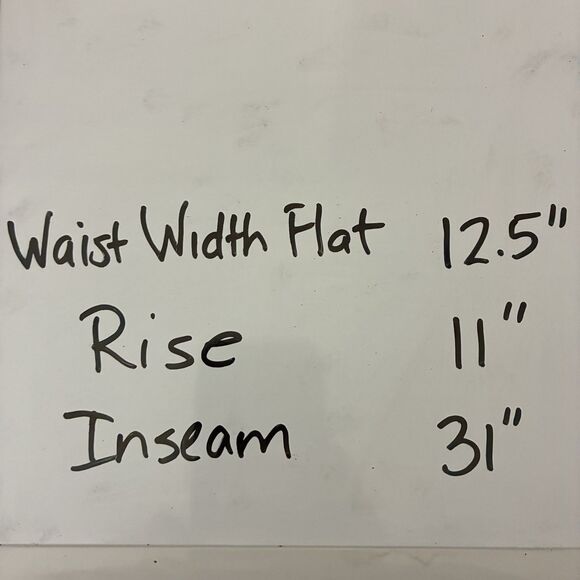 Waist Width Flat 12.5"
Rise 11"
Inseam 31"